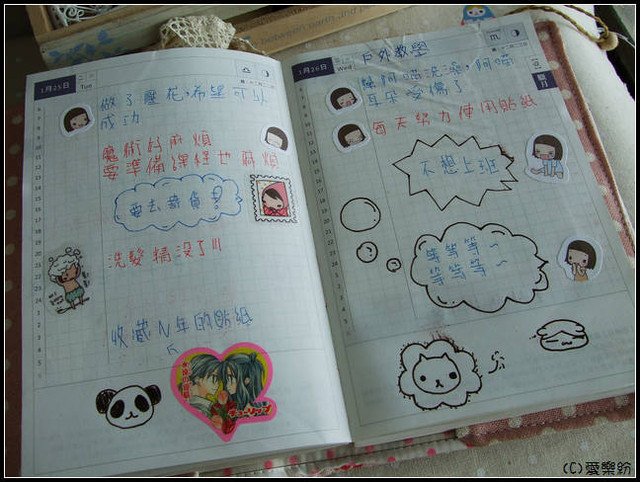 1月25日
Tue
做了壓花，希望可以
成功
魔術好麻煩
要準備課程也麻煩
洗髮精沒了!!!
收藏N年的貼紙
1月26日
Wed
戶外教學
幫阿喵洗澡，阿喵
耳朵受傷了
每天努力使用貼紙
不想上班
等等等~
等等等~
(C)愛樂紛